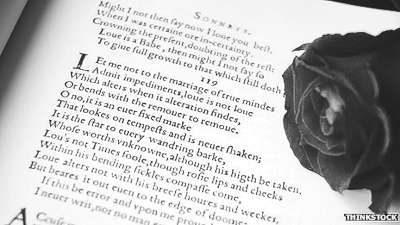 SONNETS.
Might I not then say now I loue you best.
When I was certaine ore in-certainty,
Crowning the present, doubting of the rest:
Loue is a Babe, then might I not say so
To giue full growth to that which still doth
119
LEt me not to the marriage of true mindes
Admit impediments, loue is not loue
Which alters when it alteration findes,
Or bends with the remouer to remoue.
O no, it is an euer fixed marke
That lookes on tempests and is neuer shaken;
It is the star to euery wandring barke,
Whose worths vnknowne, although his higth be taken.
Lou's not Times foole, though rosie lips and cheeks
Within his bending sickles compasse come,
Loue alters not with his breefe houres and weekes,
But beares it out euen to the edge of doome:
If this be error and vpon me proued,
I neuer writ, nor no man
A
THINKSTOCK